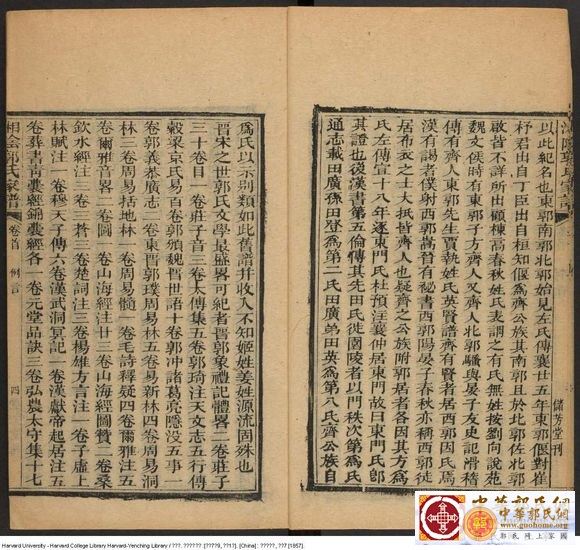 儲芳堂刊
以此紀名也東郭南郭北郭始見左氏傳襄廿五年東郭偃對崔
杼君由自丁臣出自桓知偃為齊公族其南郭且於北郭佐北郭
啟皆不詳所出顧棟高春秋姓氏表謂之有氏無姓按劉向說苑
魏文侯時有東郭子方齊人又齊人北郭騷與晏子友史記滑稽
傳有齊人東郭先生賈執姓氏英賢譜齊有賢者居西郭因氏焉
漢有謁者僕射西郭嵩晉有秘書西郭陽晏子春秋亦稱西郭徒
居布衣之士大抵皆齊人也疑齊之公族附郭居者各因其方為
氏左傳宣十八年逐東門氏杜預注襄仲居東門故曰東門氏即
其證也後漢書第五倫傳其先田氏徙園陵者以門秩次第為氏
通志載田廣孫田登為第二氏田廣弟田英為第八氏齊公族自
為氏以示別類如此舊譜并收入不知姬姓姜姓源流固殊也
晉宋之世郭氏文學最盛畧可紀者晉郭象禮記體畧二卷莊子
三十卷目一卷莊子音三卷太傳集五卷郭琦注天文志五行傳
穀梁京氏易百卷郭頒魏晉世語十卷郭沖諸葛亮隱没五事一
卷郭義恭廣志二卷東晉郭璞周易林五卷易新林四卷周易洞
林三卷周易括地林一卷周易髓一卷毛詩釋疑四卷爾雅注五
卷爾雅音畧二卷圖一卷山海經注廿三卷山海經圖贊二卷桑
欽水經注三卷三蒼三卷楚詞注三卷楊雄方言注一卷子虛上
林賦注一卷穆天子傳六卷漢武洞冥記一卷漢獻帝起居注五
卷葬書青囊經錦囊經各一卷元堂品訣三卷弘農太守集十七
湘陰郭氏家譜 卷首 例言 四
中华郭氏网
中華郭氏網
www.guohome.org
郭氏網上家園
Harvard University - Harvard College Library Harvard-Yenching Library / ???. ??????. [????9, ??1?]. [China] : ?????, ??7 [1857].